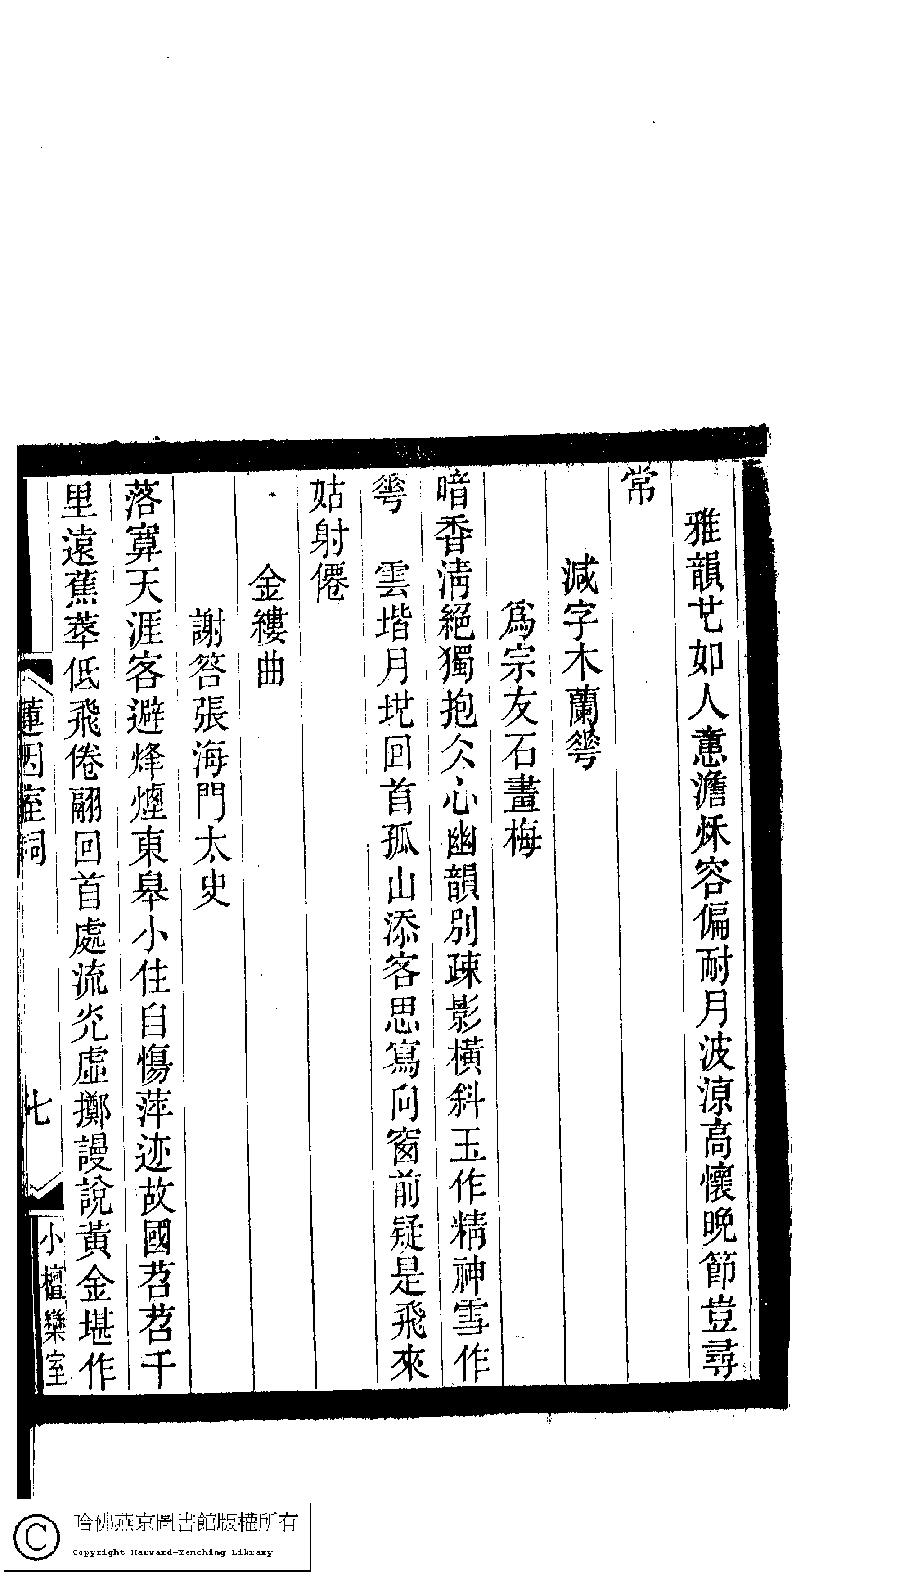 雅韻廿如人蕙澹烁容偏耐月波凉高懷晚節豈尋
常
減字木蘭蕚
爲宗友石畫梅
暗香淸絕獨抱仌心幽韻別疎影橫斜玉作精神雪作
蕚　雲堦月地回首孤山添客思寫向窗前疑是飛來
姑射僊
金縷曲
謝答張海門太史
落寞天涯客避烽煙東皋小住自傷萍迹故國苕苕千
里遠蕉萃低飛倦翮回首處流光虛擲謾說黃金堪作
蓮因室詞
七
小檀欒室
哈佛燕京圖書館版權所有
Copyright Harvard-Yenching Library